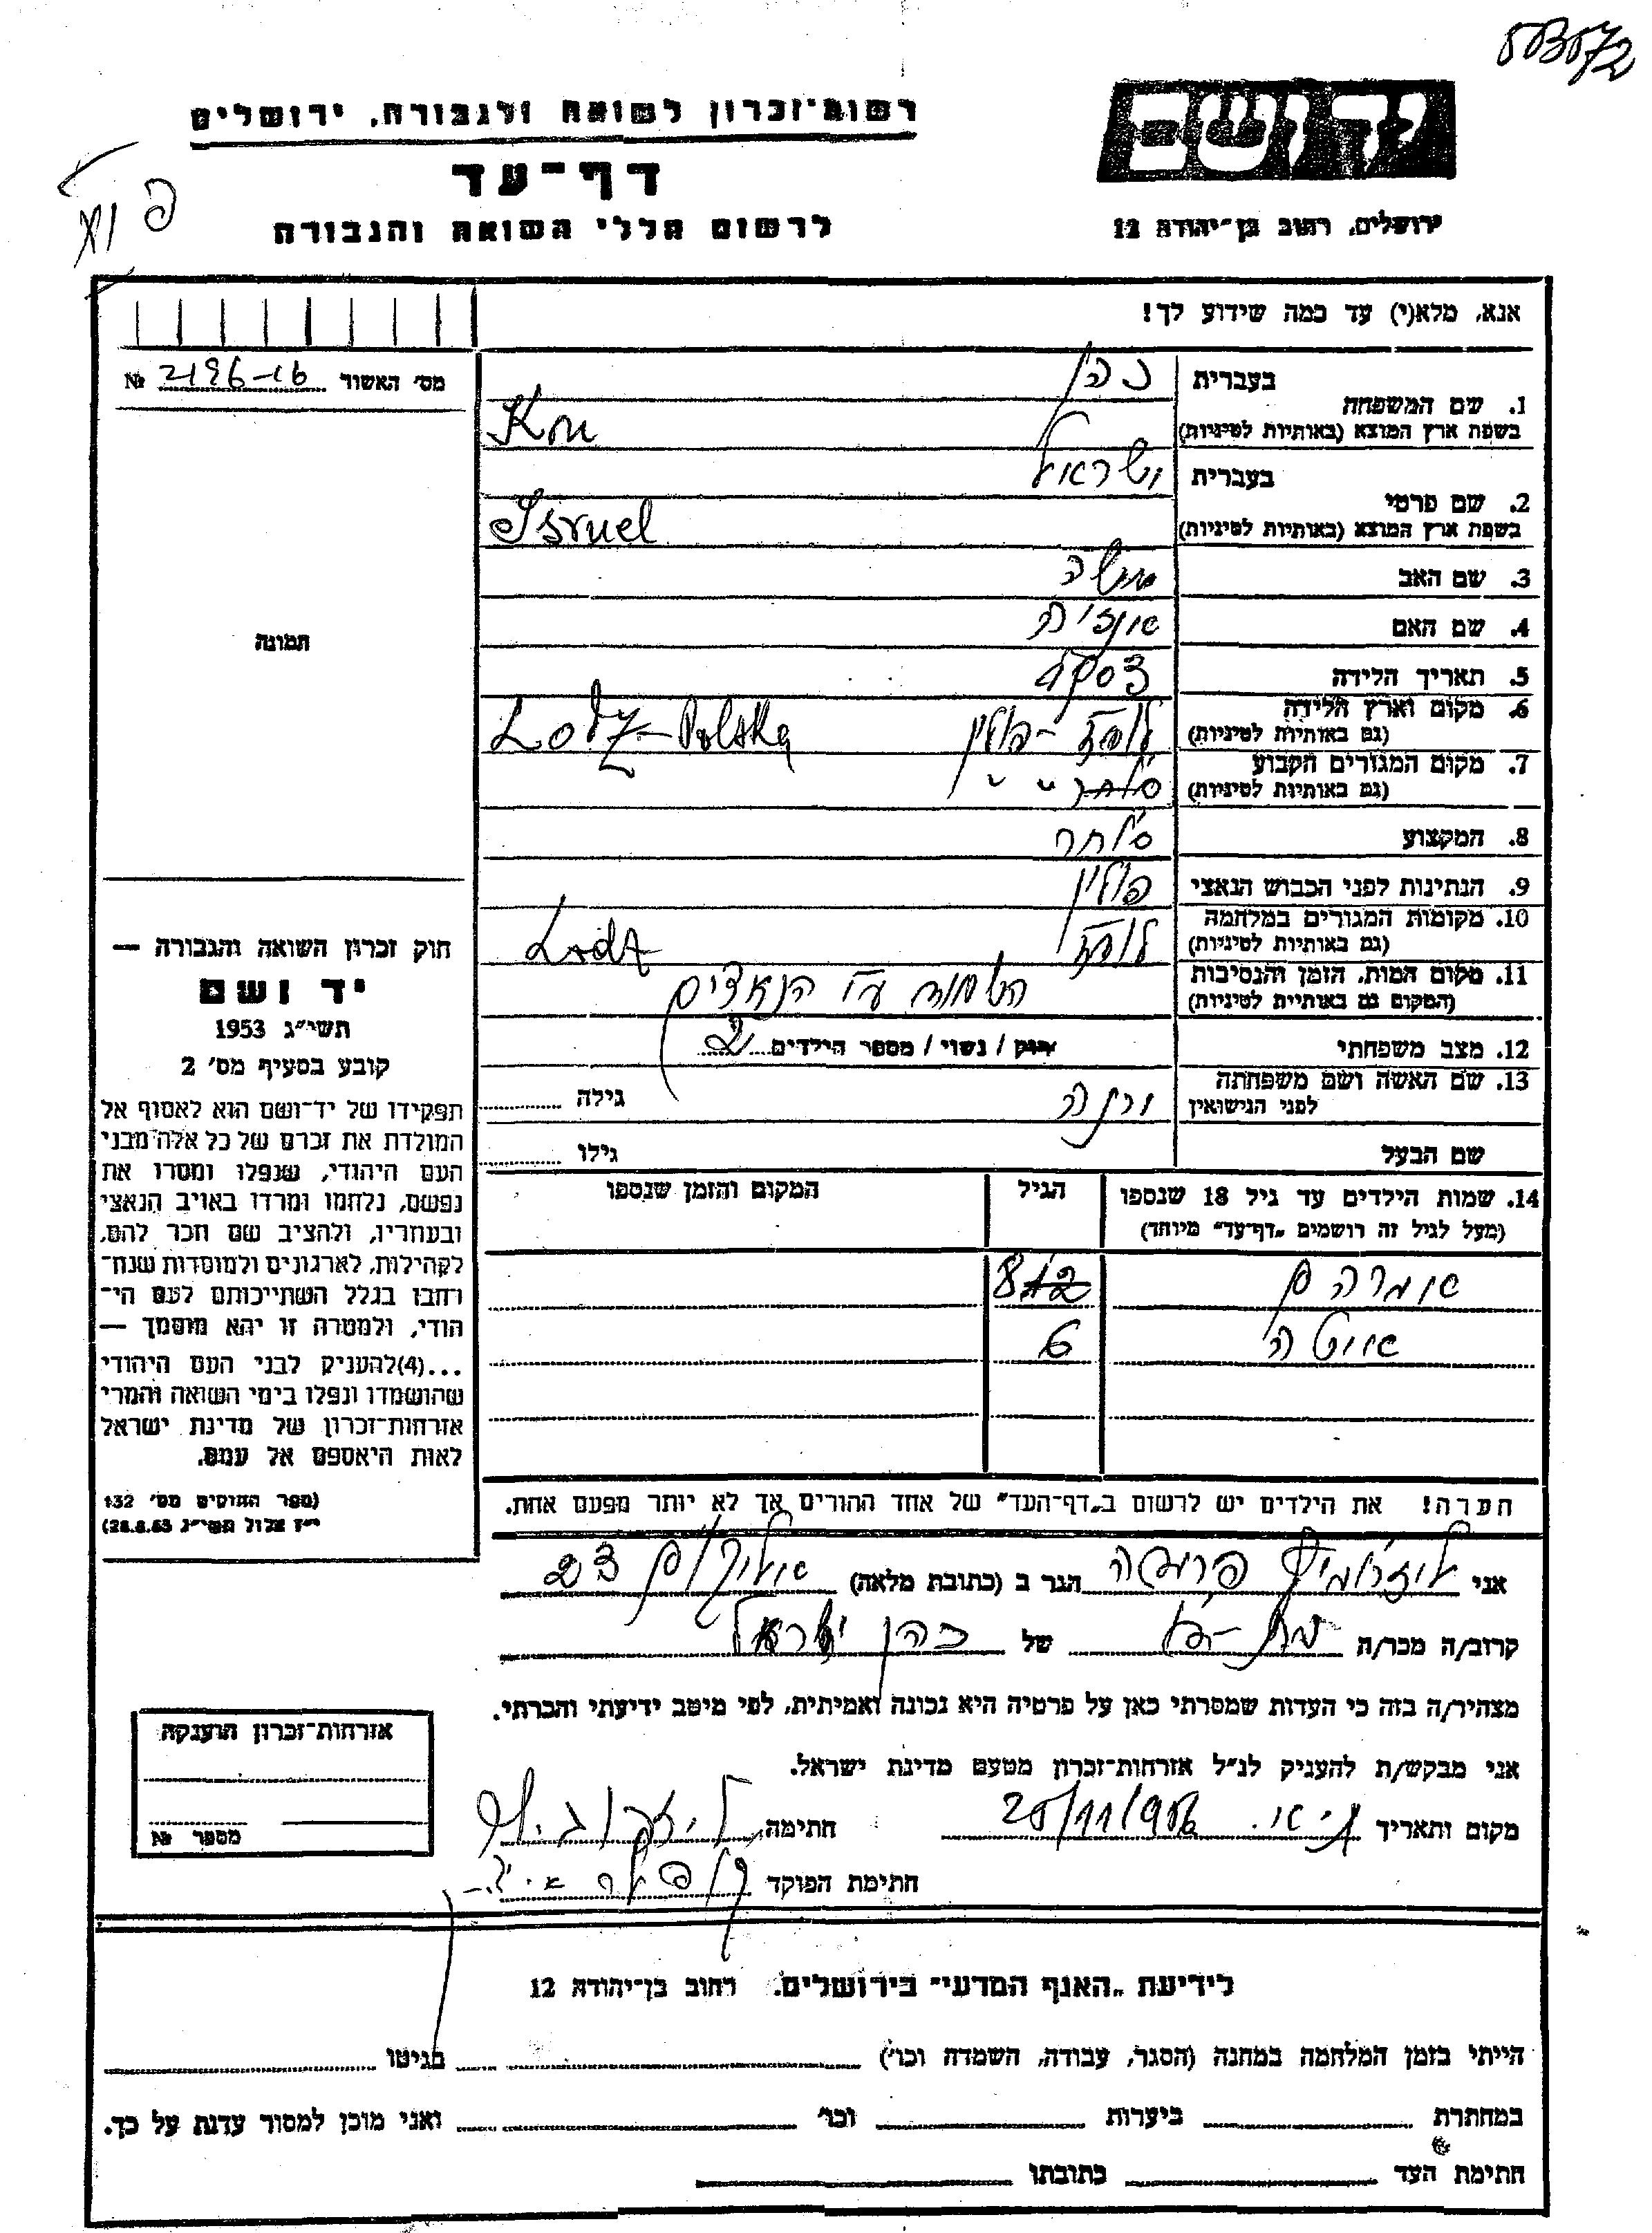 רשות־זכרון לשואה ולגבורה, ירושלים
דף־עד
לרשום חללי השואה והגבורה
יד ושם
ירושלים, רחוב בן־יהודה 12
אנא, מלא(י) עד כמה שידוע לך!
מס׳ האשור № 2196-16
1. שם המשפחה
בעברית כהן
בשפת ארץ המוצא (באותיות לטיניות) Kon
2. שם פרטי
בעברית ישראל
בשפת ארץ המוצא (באותיות לטיניות) Israel
3. שם האב משה
4. שם האם
5. תאריך הלידה
6. מקום וארץ הלידה
(גם באותיות לטיניות) לודז - פולין Lodz - Polska
7. מקום המגורים הקבוע
(גם באותיות לטיניות) " "
8. המקצוע סוחר
9. הנתינות לפני הכבוש הנאצי פולין
10. מקומות המגורים במלחמה
(גם באותיות לטיניות) לודז Lodz
11. מקום המות, הזמן והנסיבות
(המקום גם באותיית לטיניות) הושמד ע״י הנאצים
12. מצב משפחתי רוק / נשוי / מספר הילדים 2
13. שם האשה ושם משפחתה
לפני הנישואין גילה
שם הבעל גילו
14. שמות הילדים עד גיל 18 שנספו
(מעל לגיל זה רושמים „דף־עד״ מיוחד)
הגיל
המקום והזמן שנספו
8
6
תמונה
חוק זכרון השואה והגבורה —
יד ושם
תשי״ג 1953
קובע בסעיף מס׳ 2
תפקידו של יד־ושם הוא לאסוף אל
המולדת את זכרם של כל אלה מבני
העם היהודי, שנפלו ומסרו את
נפשם, נלחמו ומרדו באויב הנאצי
ובעוזריו, ולהציב שם וזכר להם,
לקהילות, לארגונים ולמוסדות שנח־
רבו בגלל השתייכותם לעם הי־
הודי, ולמטרה זו יהא מוסמך —
...(4)להעניק לבני העם היהודי
שהושמדו ונפלו בימי השואה והמרי
אזרחות־זכרון של מדינת ישראל
לאות היאספם אל עמם.
(ספר החוקים מס׳ 132
י״ז אלול תשי״ג 28.8.53)
הערה! את הילדים יש לרשום ב„דף־העד״ של אחד ההורים אך לא יותר מפעם אחת.
אני הגר ב (כתובת מלאה)
קרוב/ה מכר/ה של כהן ישראל
מצהיר/ה בזה כי העדות שמסרתי כאן על פרטיה היא נכונה ואמיתית, לפי מיטב ידיעתי והכרתי.
אני מבקש/ת להעניק לנ״ל אזרחות־זכרון מטעם מדינת ישראל.
מקום ותאריך חתימה
חתימת הפוקד
אזרחות־זכרון הוענקה
מספר №
לידיעת „האגף המדעי״ בירושלים. רחוב בן־יהודה 12
הייתי בזמן המלחמה במחנה (הסגר, עבודה, השמדה וכו׳) בגיטו
במחתרת ביערות וכו׳ ואני מוכן למסור עדות על כך.
חתימת העד כתובתו